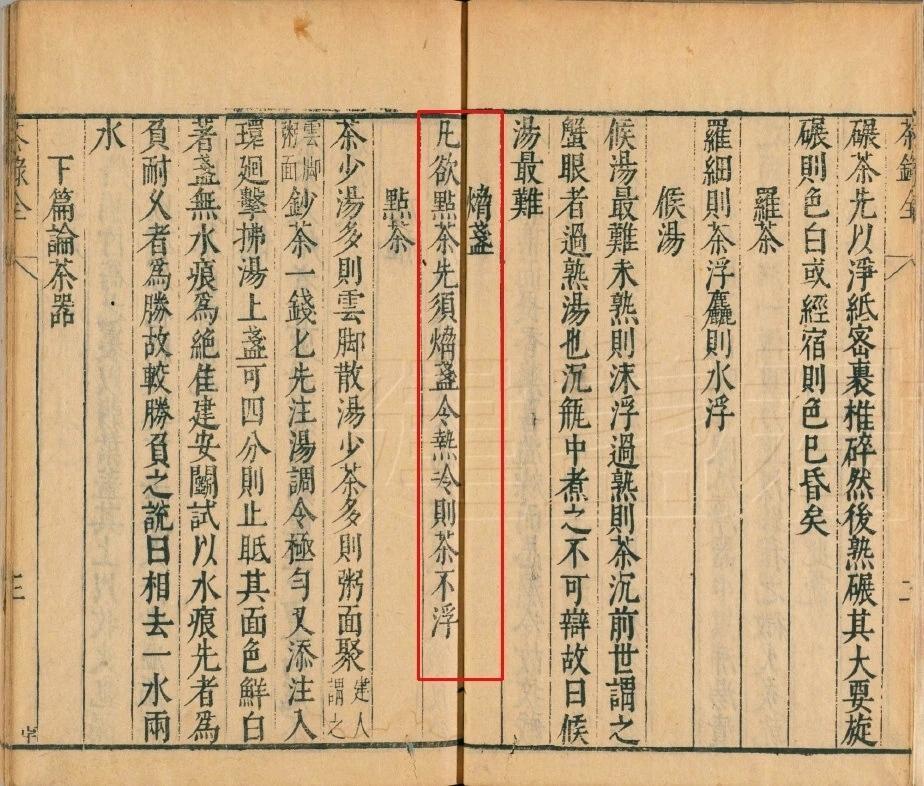 茶錄全 二
碾茶先以淨紙密裹椎碎然後熟碾其大要旋
碾則色白或經宿則色已昏矣
羅茶
羅細則茶浮麤則水浮
候湯
候湯最難未熟則沫浮過熟則茶沉前世謂之
蟹眼者過熟湯也沉瓶中煮之不可辯故曰候
湯最難
熁盞
凡欲點茶先須熁盞令熱冷則茶不浮
點茶
茶少湯多則雲脚散湯少茶多則粥面聚建人謂之
雲脚粥面鈔茶一錢匕先注湯調令極勻又添注入
環廻擊拂湯上盞可四分則止眂其面色鮮白
著盞無水痕爲絶佳建安鬬試以水痕先者爲
負耐久者爲勝故較勝負之說曰相去一水兩
水
下篇論茶器
茶錄全 三